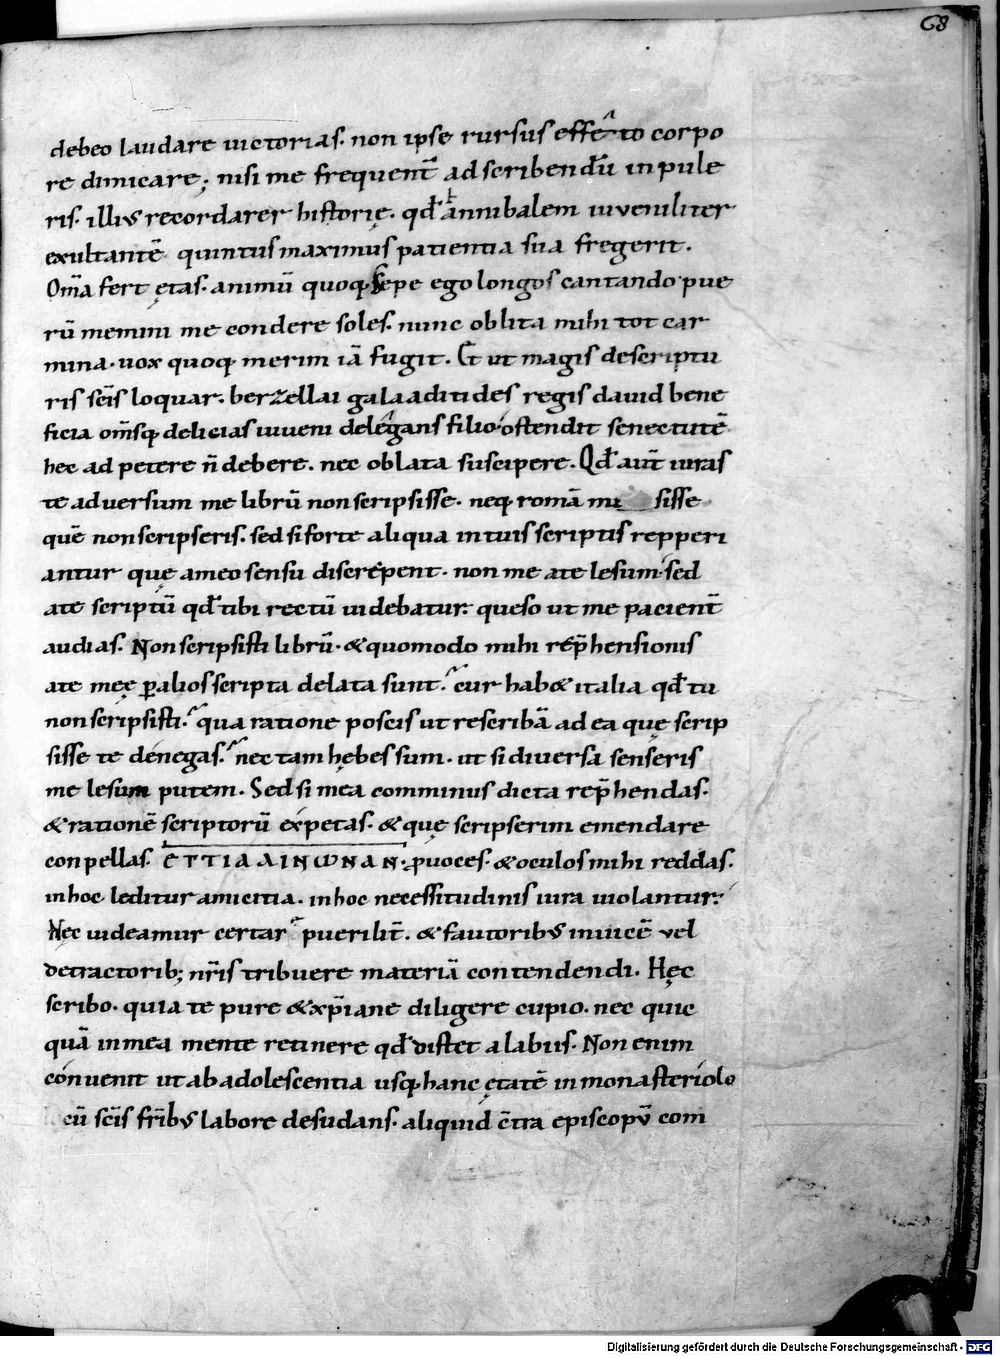 68
debeo laudare uictorias. non ipse rursus effeto corpo
re dimicare; nisi me frequent̄ ad scribendū inpule
ris. illius recordarer historię. qd̄ annibalem iuveniliter
exultantē quintus maximus patientia sua fregerit.
Om̄a fert ętas. animū quoq; sepe ego longos cantando pue
rū memini me condere soles. nunc oblita mihi tot car
mina. uox quoq; merim iā fugit. Et ut magis descriptu
ris sc̄is loquar. berzellai galaaditides regis dauid bene
ficia om̄sq; delicias iuueni delegans filio. ostendit senectutē
hec ad petere n̄ debere. nec oblata suscipere. Qd̄ aut̄ iuras
te adversum me librū non scripsisse. neq; romā mi sisse
quē non scripseris. sed si forte aliqua in tuis scriptis repperi
antur quę a meo sensu discrepent. non me a te lesum. sed
a te scriptū qd̄ tibi rectū uidebatur. queso ut me pacient̄
audias. Non scripsisti librū. & quomodo mihi rep̄hensionis
a te meę ꝑ alios scripta delata sunt. cur hab& italia qd̄ tu
non scripsisti. qua ratione poscis ut rescribā ad ea quę scrip
sisse te denegas. nec tam hębes sum. ut si diversa senseris
me lesum putem. Sed si mea comminus dicta rep̄hendas.
& rationē scriptorū expetas. & quę scripserim emendare
conpellas. ЄΤΤΙΑ ΛΙΝωΝΑΝ. puoces. & oculos mihi reddas.
in hoc leditur amicitia. in hoc necessitudinis iura uiolantur.
Nec uideamur certar puerilit̄. & fautoribus inuicē vel
detractorib; nr̄is tribuere materiā contendendi. Hęc
scribo. quia te pure & xp̄iane diligere cupio. nec quic
quā in mea mente retinere qd̄ distet a labiis. Non enim
conuenit ut ab adolescentia usq; hanc ętatē in monasteriolo
cū sc̄is fr̄ibus labore desudans. aliquid c̄tra episcopū com
Digitalisierung gefördert durch die Deutsche Forschungsgemeinschaft - DFG